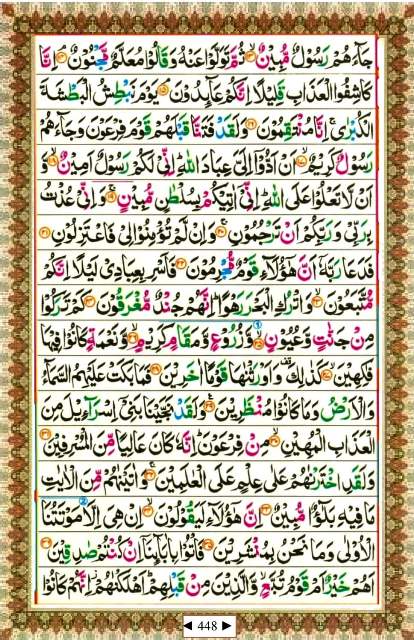 جَآءَهُمْ رَسُوْلٌ مُّبِيْنٌ ۙ‏﴿۱۳﴾ ثُمَّ تَوَلَّوْا عَنْهُ وَقَالُوْا مُعَلَّمٌ مَّجْنُوْنٌ ۘ‏﴿۱۴﴾ اِنَّا
كَاشِفُوا الْعَذَابِ قَلِيْلًا اِنَّكُمْ عَآئِدُوْنَ ۘ‏﴿۱۵﴾ يَوْمَ نَبْطِشُ الْبَطْشَةَ
الْكُبْرٰى ۚ اِنَّا مُنْتَقِمُوْنَ ‏﴿۱۶﴾ وَلَقَدْ فَتَنَّا قَبْلَهُمْ قَوْمَ فِرْعَوْنَ وَجَآءَهُمْ
رَسُوْلٌ كَرِيْمٌ ۙ‏﴿۱۷﴾ اَنْ اَدُّوْۤا اِلَىَّ عِبَادَ اللّٰهِ ؕ اِنِّىْ لَكُمْ رَسُوْلٌ اَمِيْنٌ ۙ‏﴿۱۸﴾ وَّ
اَنْ لَّا تَعْلُوْا عَلَى اللّٰهِ ۚ اِنِّىْۤ اٰتِيْكُمْ بِسُلْطٰنٍ مُّبِيْنٍ ۚ‏﴿۱۹﴾ وَاِنِّىْ عُذْتُ
بِرَبِّىْ وَرَبِّكُمْ اَنْ تَرْجُمُوْنِ ‏﴿۲۰﴾ وَاِنْ لَّمْ تُؤْمِنُوْا لِىْ فَاعْتَزِلُوْنِ ‏﴿۲۱﴾
فَدَعَا رَبَّهٗۤ اَنَّ هٰٓؤُلَآءِ قَوْمٌ مُّجْرِمُوْنَ ‏﴿۲۲﴾ فَاَسْرِ بِعِبَادِىْ لَيْلًا اِنَّكُمْ
مُّتَّبَعُوْنَ ۙ‏﴿۲۳﴾ وَاتْرُكِ الْبَحْرَ رَهْوًا ؕ اِنَّهُمْ جُنْدٌ مُّغْرَقُوْنَ ‏﴿۲۴﴾ كَمْ تَرَكُوْا
مِنْ جَنّٰتٍ وَّعُيُوْنٍ ۙ‏﴿۲۵﴾ وَّزُرُوْعٍ وَّمَقَامٍ كَرِيْمٍ ۙ‏﴿۲۶﴾ وَّنَعْمَةٍ كَانُوْا فِيْهَا
فٰكِهِيْنَ ۙ‏﴿۲۷﴾ كَذٰلِكَ ۟ وَاَوْرَثْنٰهَا قَوْمًا اٰخَرِيْنَ ‏﴿۲۸﴾ فَمَا بَكَتْ عَلَيْهِمُ السَّمَآءُ
وَالْاَرْضُ وَمَا كَانُوْا مُنْظَرِيْنَ ‏﴿۲۹﴾ وَلَقَدْ نَجَّيْنَا بَنِىْۤ اِسْرَآءِيْلَ مِنَ
الْعَذَابِ الْمُهِيْنِ ۙ‏﴿۳۰﴾ مِنْ فِرْعَوْنَ ؕ اِنَّهٗ كَانَ عَالِيًا مِّنَ الْمُسْرِفِيْنَ ‏﴿۳۱﴾
وَلَقَدِ اخْتَرْنٰهُمْ عَلٰى عِلْمٍ عَلَى الْعٰلَمِيْنَ ۚ‏﴿۳۲﴾ وَاٰتَيْنٰهُمْ مِّنَ الْاٰيٰتِ
مَا فِيْهِ بَلٰٓؤٌا مُّبِيْنٌ ‏﴿۳۳﴾ اِنَّ هٰٓؤُلَآءِ لَيَقُوْلُوْنَ ۙ‏﴿۳۴﴾ اِنْ هِىَ اِلَّا مَوْتَتُنَا
الْاُوْلٰى وَمَا نَحْنُ بِمُنْشَرِيْنَ ‏﴿۳۵﴾ فَاْتُوْا بِاٰبَآئِنَاۤ اِنْ كُنْتُمْ صٰدِقِيْنَ ‏﴿۳۶﴾
اَهُمْ خَيْرٌ اَمْ قَوْمُ تُبَّعٍ ۙ وَّالَّذِيْنَ مِنْ قَبْلِهِمْ ؕ اَهْلَكْنٰهُمْ ؗ اِنَّهُمْ كَانُوْا
◄ 448 ►